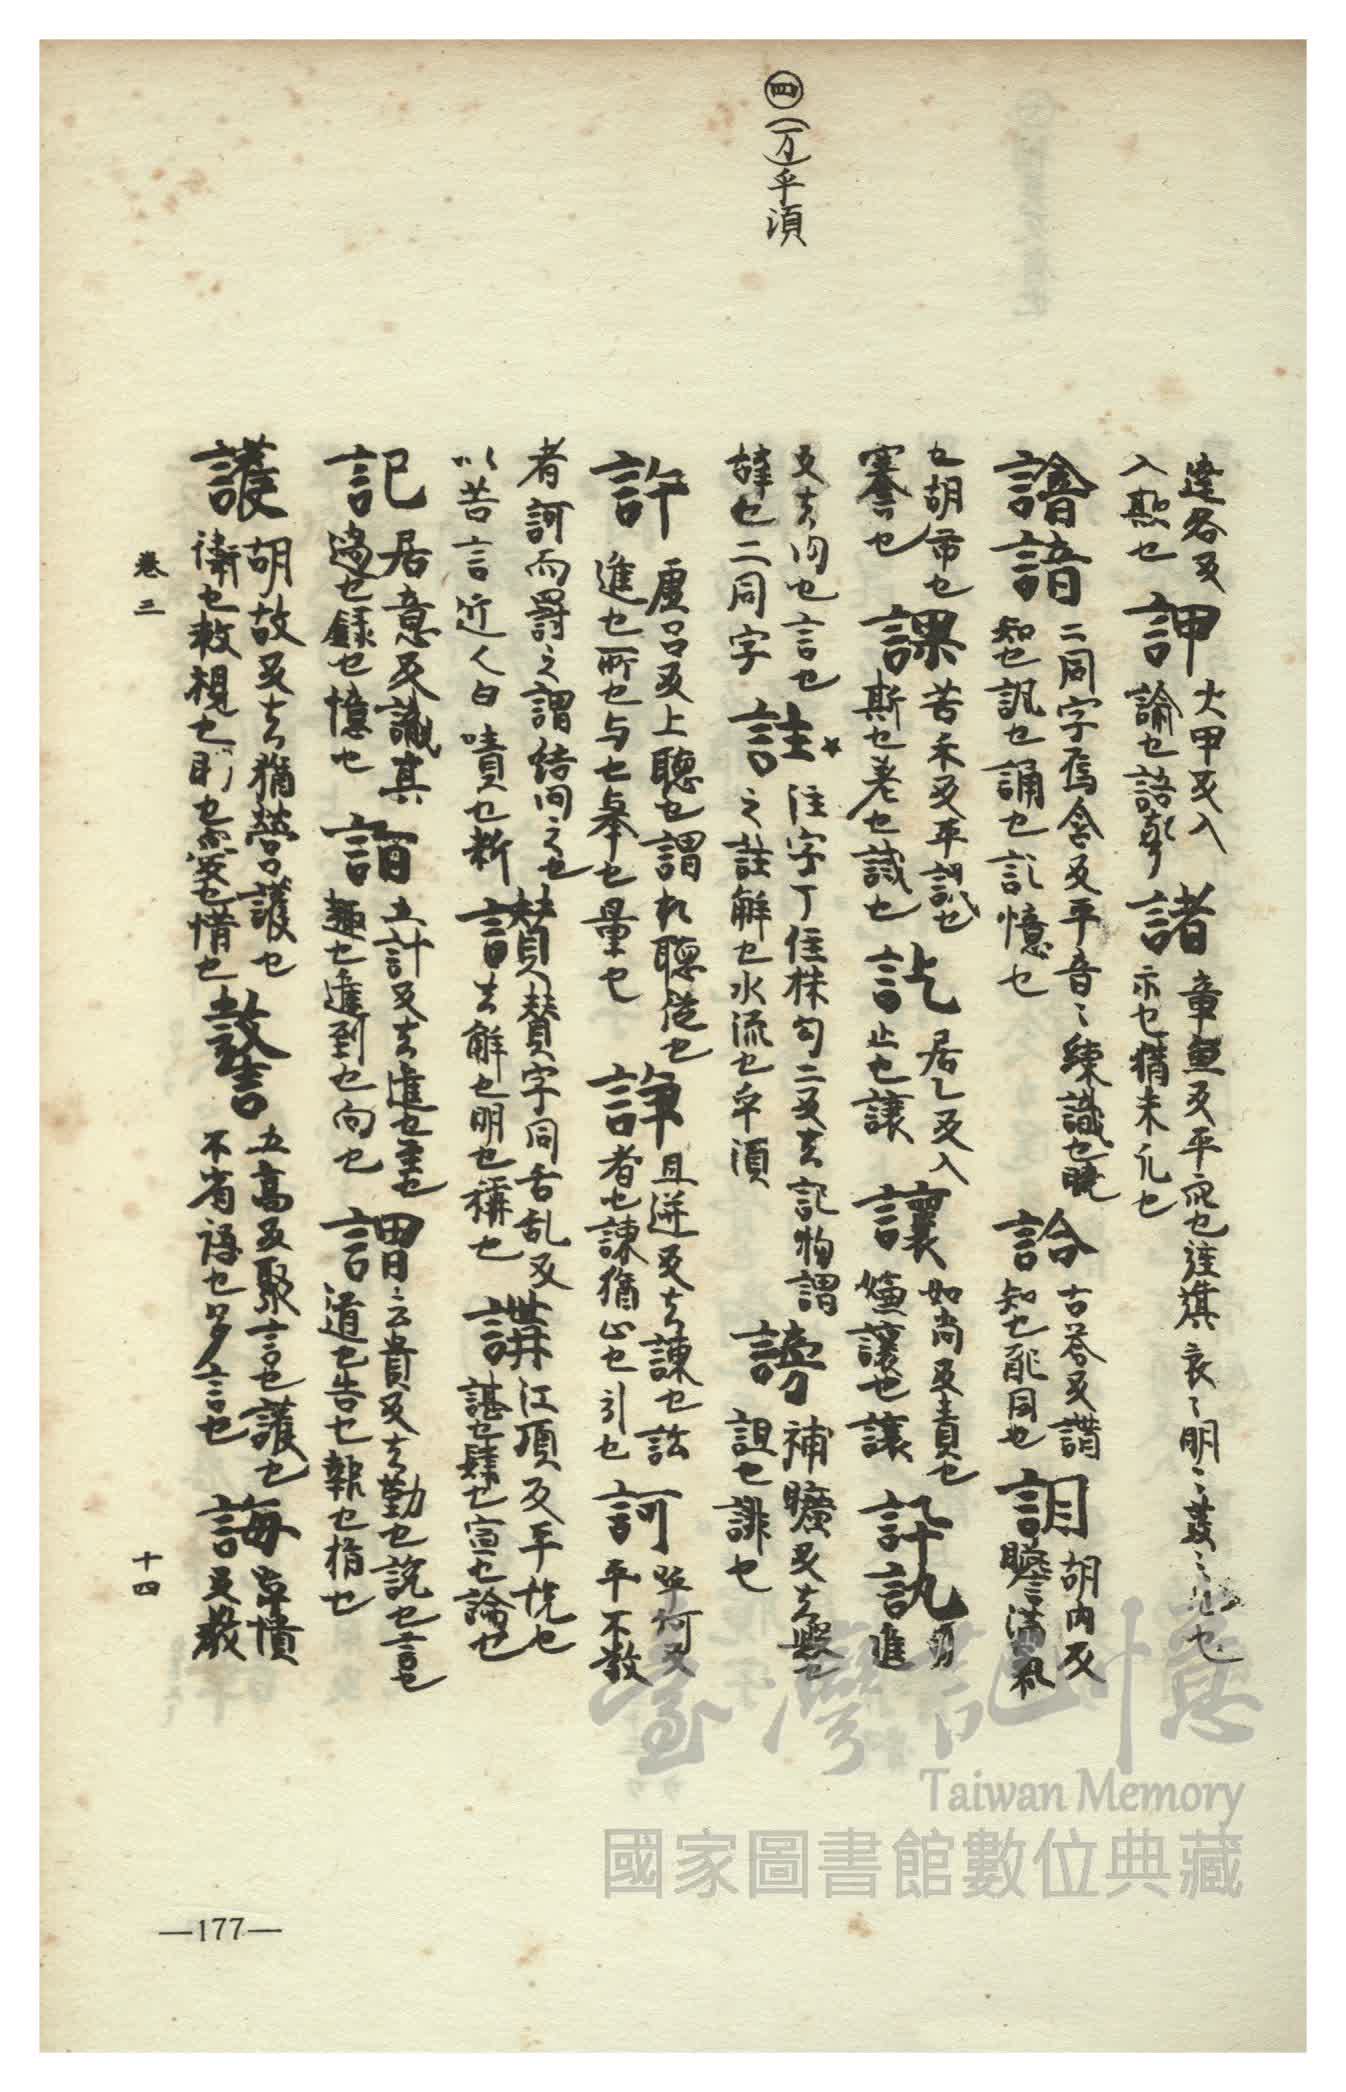 ㊃(万)乎須
達各反
入欺也
訷 火甲反入
論也語聲
諸 章魚反平
示也猶未允也
譮諳 二同字烏含反平音ミ練識也曉
知也諷也誦也記憶也
詥 古荅反諎
知也能同也
詯 胡内反
膽言滿
也胡市也
謇也
課 苦禾反平試也
斯也差也誠也
訖 居乙反入
止也讓
讓 如尚反責也
嫌讓也讓
訙
進
反去問也言也
辞也二同字
註 注字丁住株句二反去記物謂
之註解也水流也乎須
謗 補曠反去毀也
詛也誹也
許 虛呂反上聽也謂相聽從也
進也所也与也舉也量也
諍 且迸反去諫也訟
者也諫猶止也引也
訶 呼何反
平不敬
者訶而罸之謂結問之也
以苦言近人曰嘖也新
讃 賛字同舌乱反
去解也明也稱也
講 江項反平悦也
謀也肄也宣也論也
記 居意反識其
過也錄也憶也
詣 五計反去進也至也
趣也進到也向也
謂 云貴反去勤也說也言也
道也告也報也指也
護 胡故反去猶營護也
衛也救視也助也愛也惜也
謷 五高反聚言也護也
不省語也多言也
誨 荒憒
反教
卷三
十四
—177—
臺灣記憶
Taiwan Memory
國家圖書館數位典藏